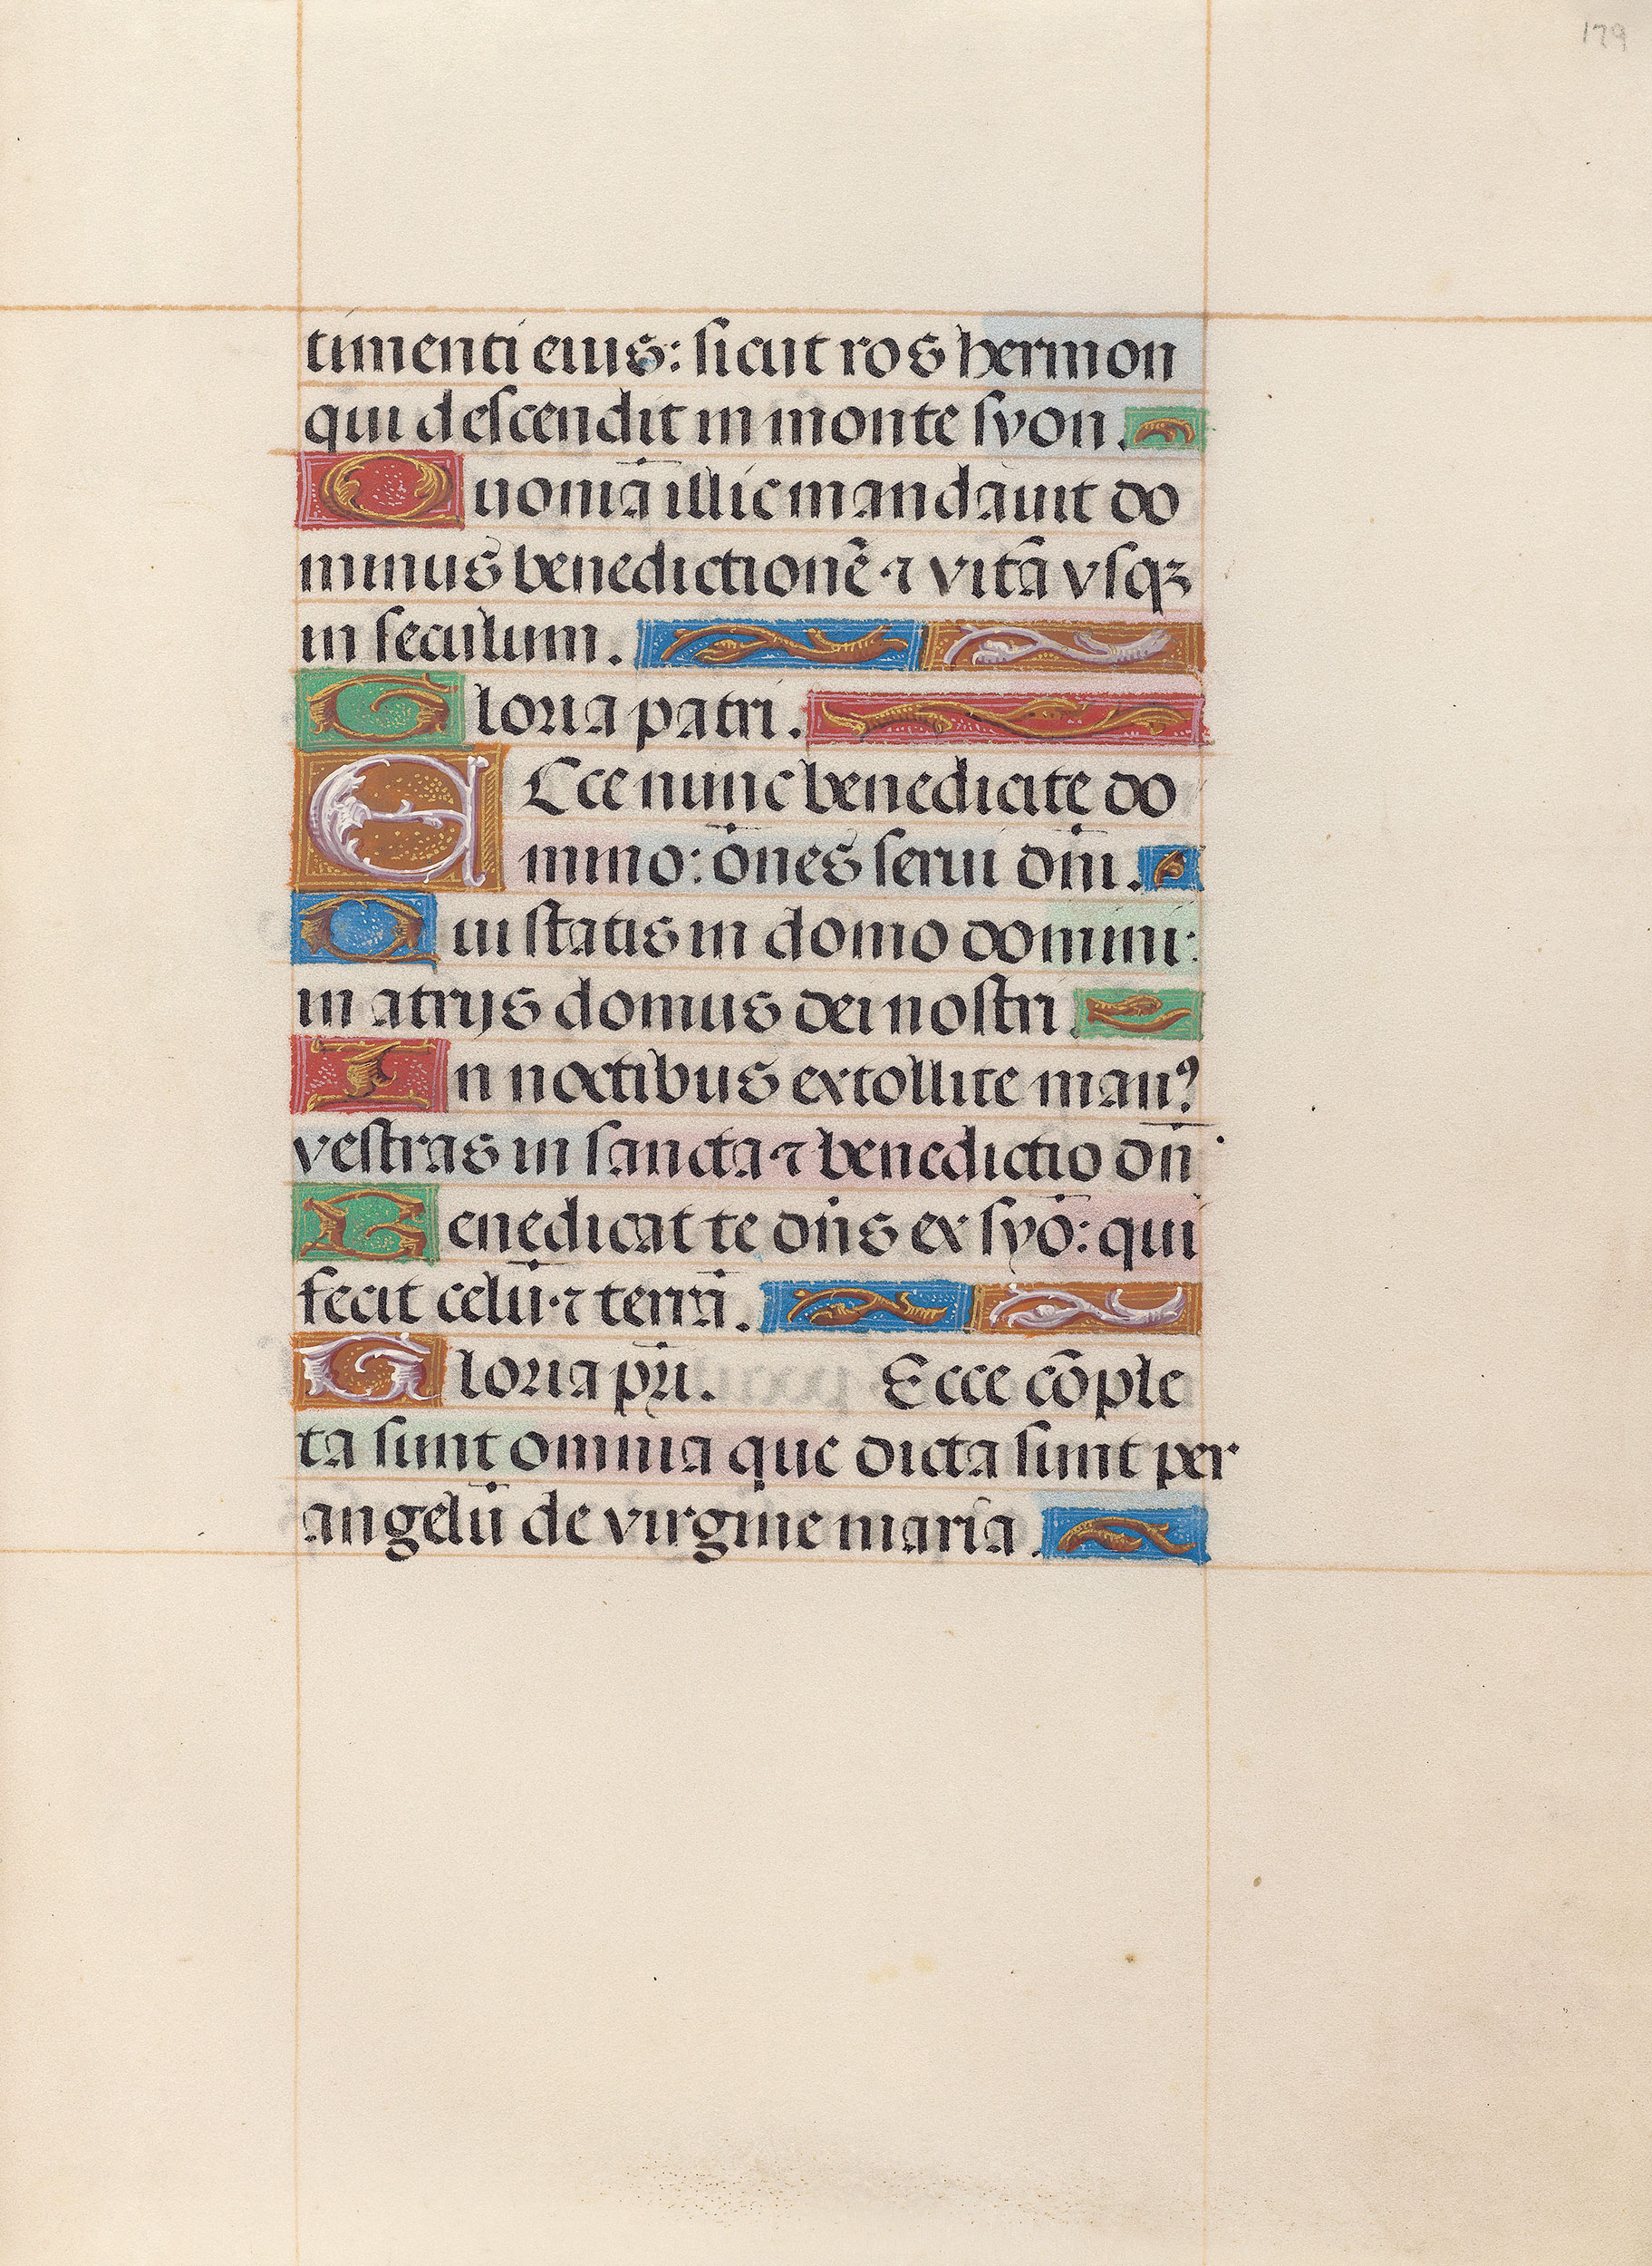 179
timenti eius: sicut ros hermon
qui descendit in monte syon.
Quoniā illic mandauit do
minus benedictionē ⁊ vitā vsqꝫ
in seculum.
Gloria patri.
Ecce nunc benedicite do
mino: ōnes serui dn̄i.
Qui statis in domo domini:
in atrijs domus dei nostri.
In noctibus extollite manꝰ
vestras in sancta ⁊ benedictio dn̄
Benedicat te dn̄s ex syō: qui
fecit celū ⁊ terrā.
Gloria pr̄i. Ecce cōple
ta sunt omnia que dicta sunt per
angelū de virgine maria.